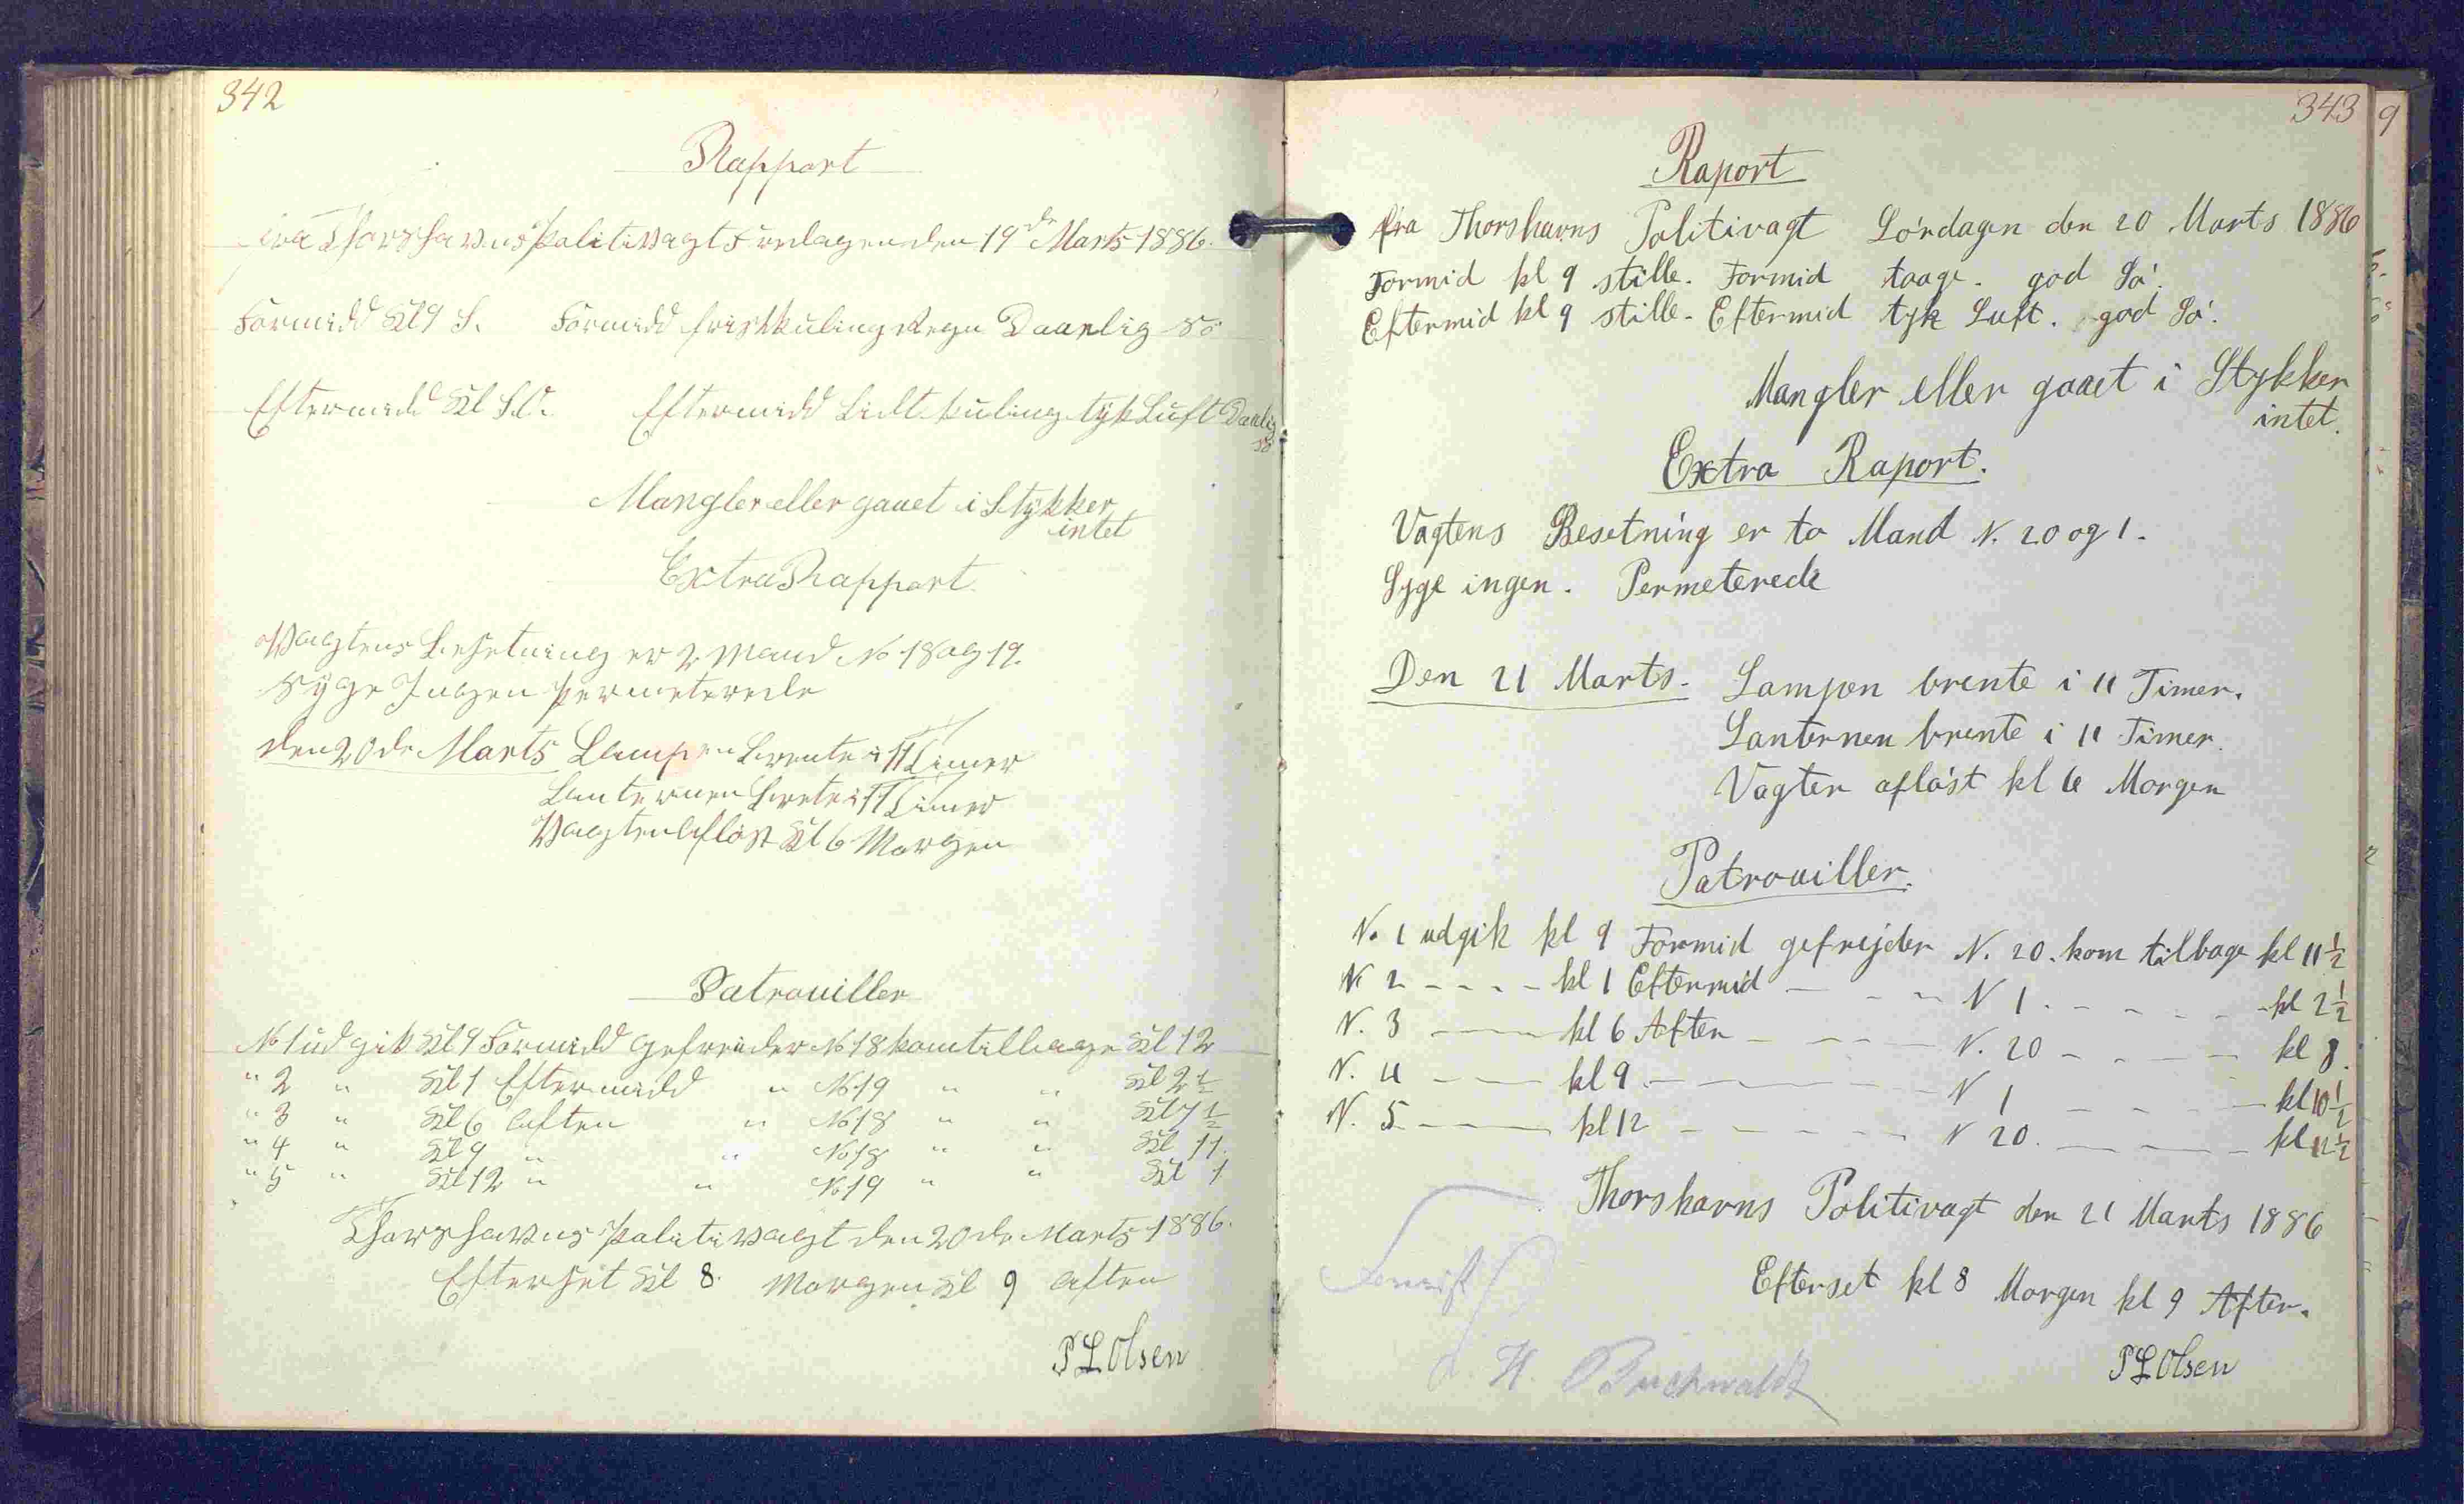 342
Rapport
fra Thorshavns Politivagt Fredagen den 19de Marts 1886.
Formidd Kl 9 S. Formidd frisk kuling Regn Daarlig Sö
Eftermidd Kl S.O. Eftermidd Lidt kuling tyk Luft Daarlig
Sö
Mangler eller gaaet i Stykker
intet
Extra Rapport
Vagtens Besetning er 2 Mand No 18 og 19.
Syge Ingen permeterede
den 20de Marts Lampen brente i 11 Timer
Lanternen brente i 11 Timer
Vagten Afløst Kl 6 Morgen
Patrouiller
No 1 udgik Kl 9 Formidd gefreider No 18 kom tilbage Kl 12
" 2 " Kl 1 Eftermidd " No 19 " " Kl 2 1/2
" 3 " Kl 6 Aften " No 18 " " Kl 7 1/2
" 4 " Kl 9 " " No 18 " " Kl 11.
" 5 " Kl 12 " " No 19 " " Kl 1
Thorshavns Politivagt den 20de Marts 1886.
Efterset Kl 8. Morgen Kl 9 Aften
P L Olsen
343
9
Raport
fra Thorshavns Politivagt Lørdagen den 20 Marts 1886
Formid kl 9 stille. Formid taage. god Sø.
Eftermid kl 9 stille. Eftermid tyk Luft. god Sø.
Mangler eller gaaet i Stykker
intet.
Extra Raport.
Vagtens Besetning er to Mand N. 20 og 1.
Syge ingen. Permeterede
Den 21 Marts. Lampen brente i 11 Timer.
Lanternen brente i 11 Timer.
Vagten afløst kl 6 Morgen
Patrouiller.
N. 1 udgik kl 9 Formid gefrejder N. 20. kom tilbage kl 11 1/2
N 2 - - - - kl 1 Eftermid - - - N 1. - - - - kl 2 1/2
N. 3 - - - kl 6 Aften - - - - N. 20 - - - - kl 8.
N. 4 - - - kl 9. - - - - N 1 - - - - kl 10 1/2
N. 5 - - - kl 12 - - - - - N 20. - - - - kl 12 1/2
Thorshavns Politivagt den 21 Marts 1886
Efterset kl 8 Morgen kl 9 Aften.
P L Olsen
H. Buchwaldt